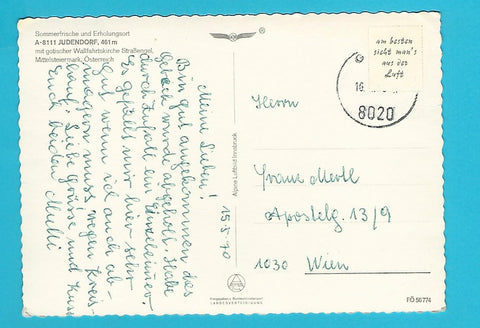 Sommerfrische und Erholungsort
A-8111 JUDENDORF, 461 m
mit gotischer Wallfahrtskirche Straßengel,
Mittelsteiermark, Österreich
am besten
sieht man's
aus der
Luft
8020
Meine Lieben!
Bin gut angekommen das
Gepäck wurde abgeholt. Habe
durch Zufall ein Einzelzimmer
Es gefällt mir hier sehr
gut wenn ich auch ab-
magern muss wegen Kreis-
lauf. Liebe Grüsse und Küsse
Euch beiden Mutti
15.5.70
Alpine Luftbild Innsbruck
Herrn
Franz Mottl
Apostelg. 13/9
1030 Wien
LANDESVERTEIDIGUNG
FÖ 56774